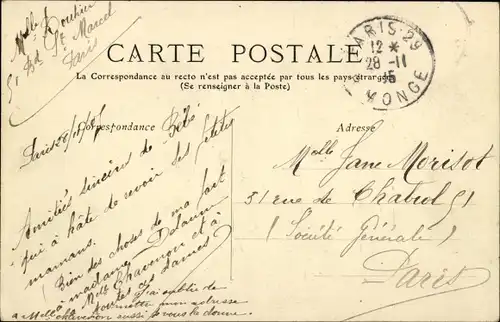 Melle Douhin
51 Bd St Marcel
Paris
CARTE POSTALE
La Correspondance au recto n'est pas acceptée par tous les pays étrangers
(Se renseigner à la Poste)
PARIS-29
12 *
28 -11
05
MONGE
Correspondance
Adresse
Paris 28/11/05
Amitiés sincères de Bébé
qui a hâte de revoir ses petites
mamans.
Bien des choses de ma part
à madame Delaume
Melle Chavenon et à
toutes ces dames
J'ai oublié de
mon adresse
à Melle Chavenon aussi je vous la donne.
Melle Jane Morisot
31 rue de Chabrol 31
(Société Générale)
Paris